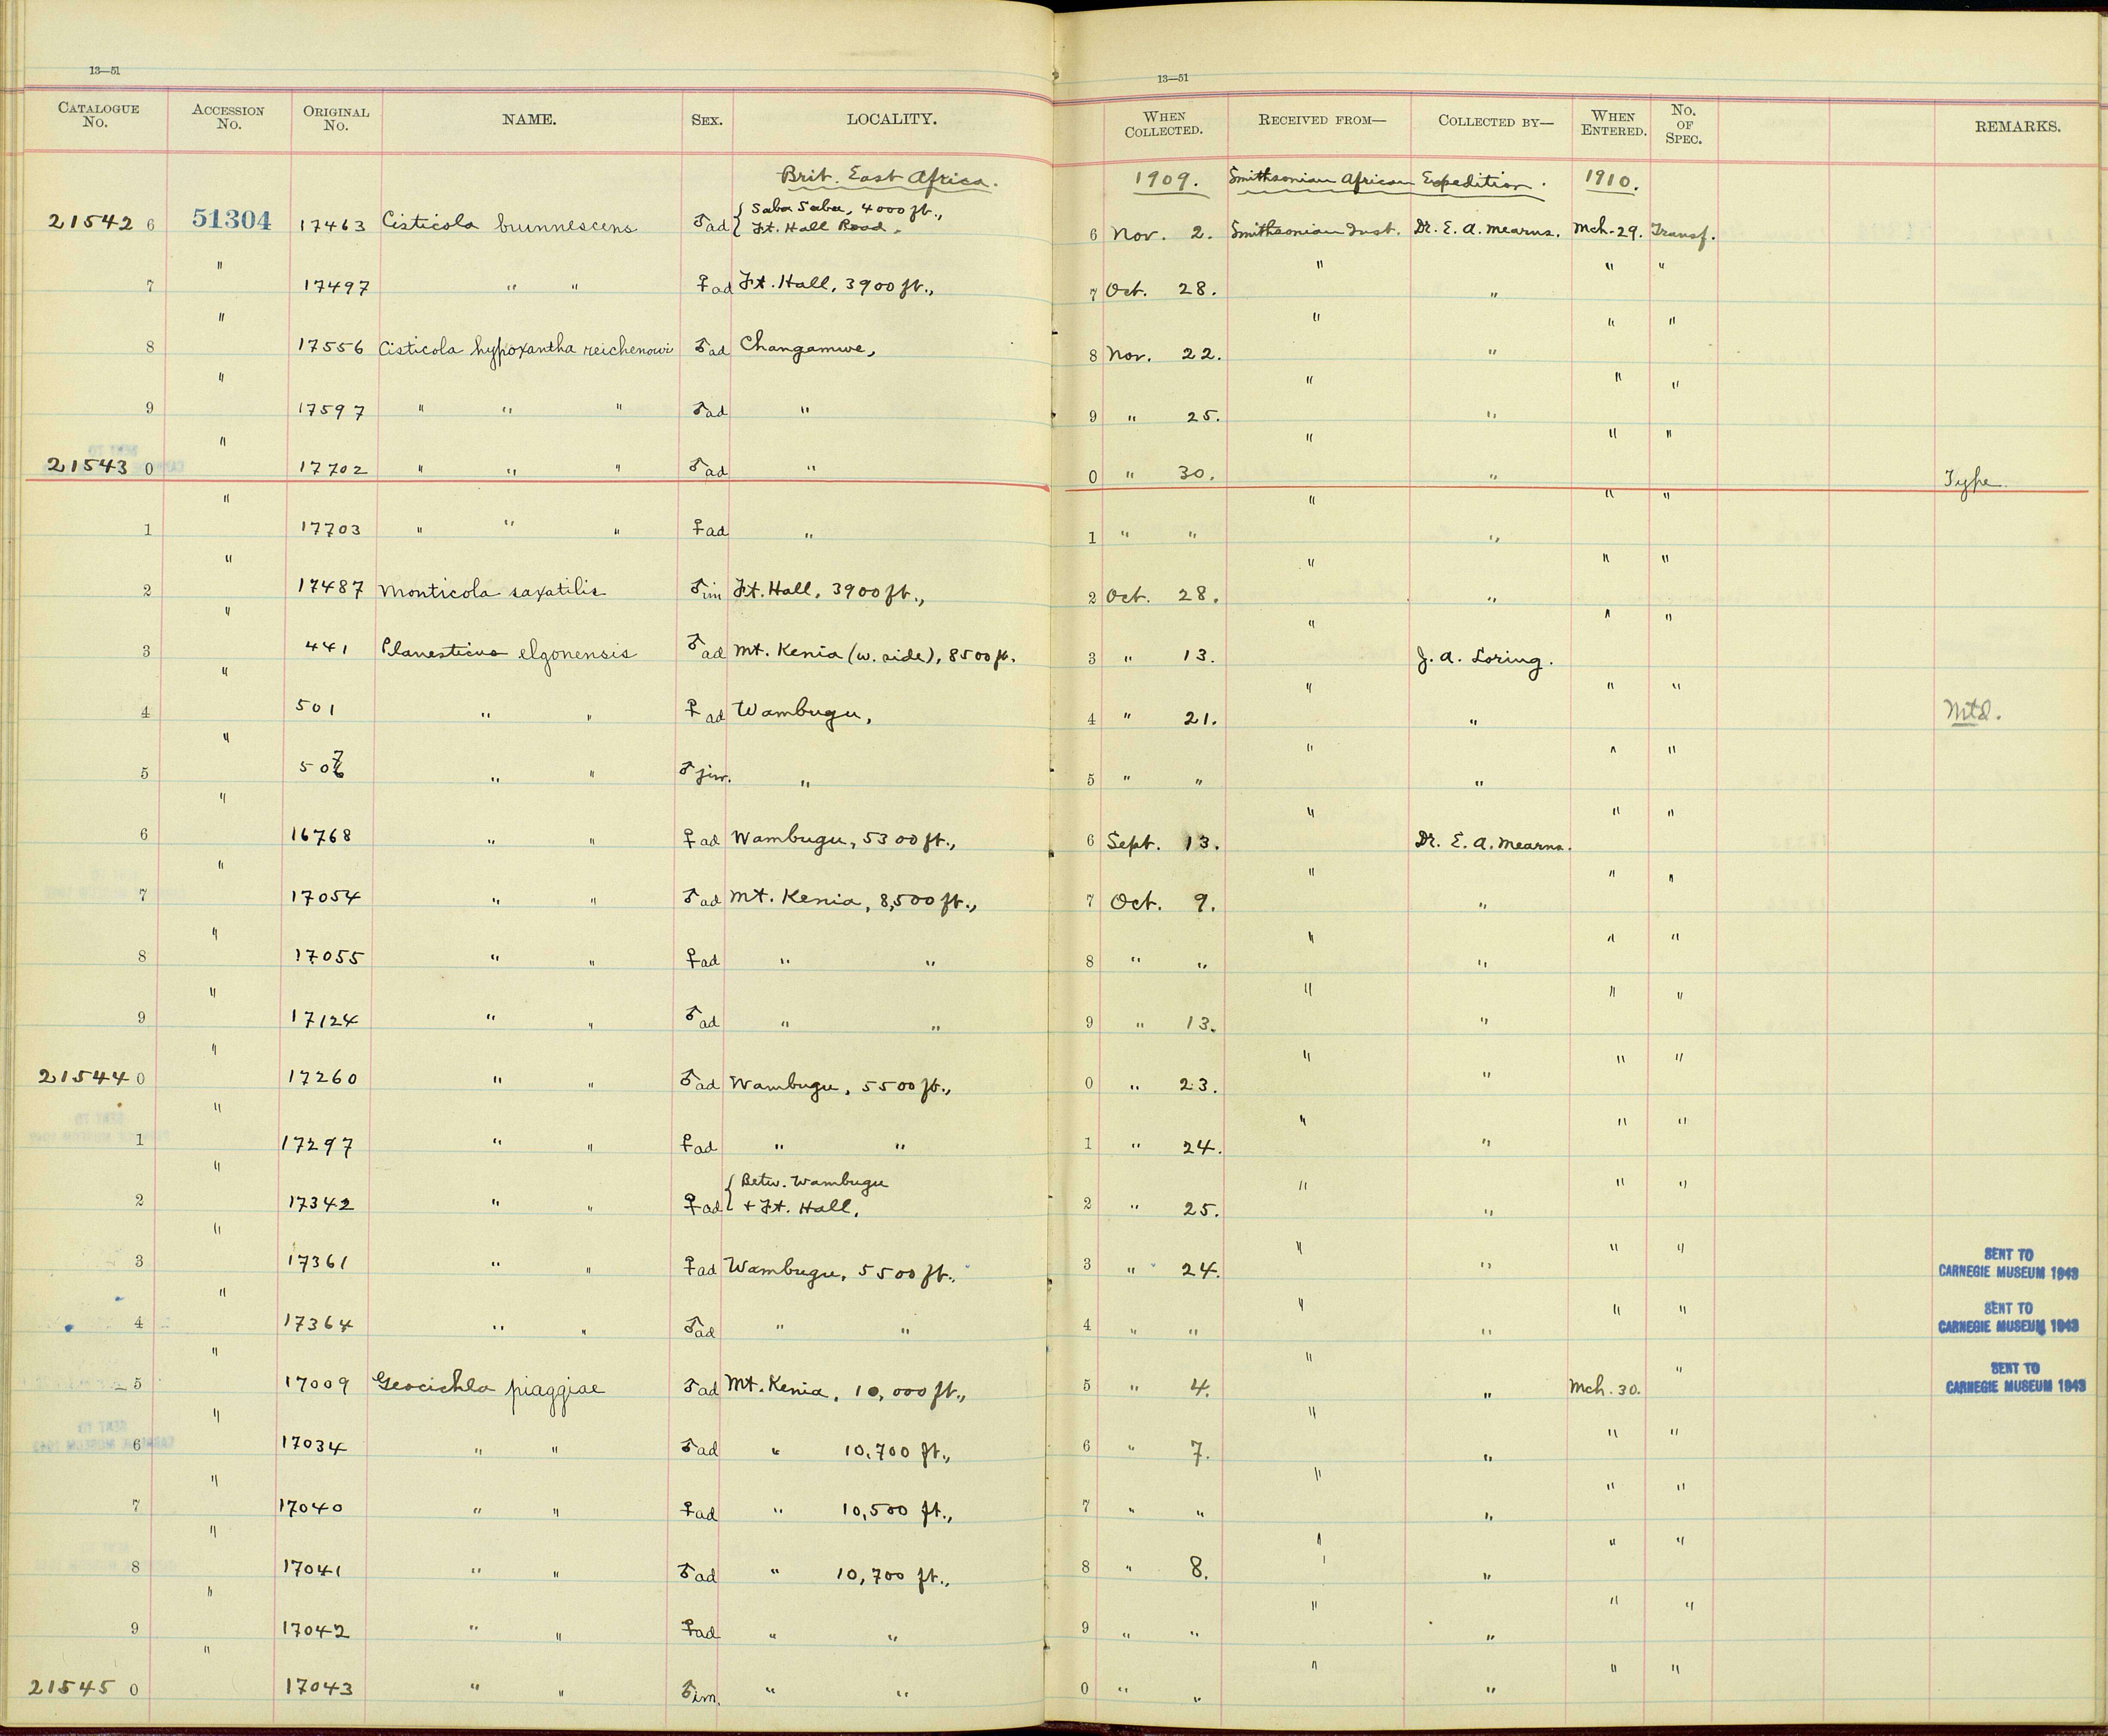 13—51
13—51
CATALOGUE No. ACCESSION No. ORIGINAL No. NAME. SEX. LOCALITY. WHEN COLLECTED. RECEIVED FROM— COLLECTED BY— WHEN ENTERED. No. OF SPEC. REMARKS.
Brit. East Africa. 1909. Smithsonian African Expedition. 1910.
21542 6 51304 17463 Cisticola brunnescens ♂ad { Saba Saba, 4000 ft., Ft. Hall Road. 6 Nov. 2. Smithsonian Inst. Dr. E. A. Mearns. Mch. 29. Transf.
7 " 17497 " " ♀ad Ft. Hall, 3900 ft., 7 Oct. 28. " " " "
8 " 17556 Cisticola hypoxantha reichenowi ♂ad Changamwe, 8 Nov. 22. " " " "
9 " 17597 " " " ♂ad " 9 " 25. " " " "
21543 0 " 17702 " " " ♂ad " 0 " 30. " " " " Type.
1 " 17703 " " " ♀ad " 1 " " " " " "
2 " 17487 Monticola saxatilis ♂im Ft. Hall, 3900 ft., 2 Oct. 28. " " " "
3 " 441 Planesticus elgonensis ♂ad Mt. Kenia (w. side), 8500 ft. 3 " 13. " J. A. Loring. " "
4 " 501 " " ♀ad Wambugu, 4 " 21. " " " " Mtd.
5 " 507 " " ♂juv. " 5 " " " " " "
6 " 16768 " " ♀ad Wambugu, 5300 ft., 6 Sept. 13. " Dr. E. A. Mearns. " "
7 " 17054 " " ♂ad Mt. Kenia, 8,500 ft., 7 Oct. 9. " " " "
8 " 17055 " " ♀ad " " 8 " " " " " "
9 " 17124 " " ♂ad " " 9 " 13. " " " "
21544 0 " 17260 " " ♂ad Wambugu, 5500 ft., 0 " 23. " " " "
1 " 17297 " " ♀ad " " 1 " 24. " " " "
2 " 17342 " " ♀ad { Betw. Wambugu + Ft. Hall. 2 " 25. " " " "
3 " 17361 " " ♀ad Wambugu, 5500 ft., 3 " 24. " " " " SENT TO CARNEGIE MUSEUM 1943
4 " 17364 " " ♂ad " " 4 " " " " " " SENT TO CARNEGIE MUSEUM 1943
5 " 17009 Geocichla piaggiae ♂ad Mt. Kenia, 10,000 ft., 5 " 4. " " Mch. 30. " SENT TO CARNEGIE MUSEUM 1943
6 " 17034 " " ♂ad " 10,700 ft., 6 " 7. " " " "
7 " 17040 " " ♀ad " 10,500 ft., 7 " " " " " "
8 " 17041 " " ♂ad " 10,700 ft., 8 " 8. " " " "
9 " 17042 " " ♀ad " " 9 " " " " " "
21545 0 " 17043 " " ♂im. " " 0 " " " " " "